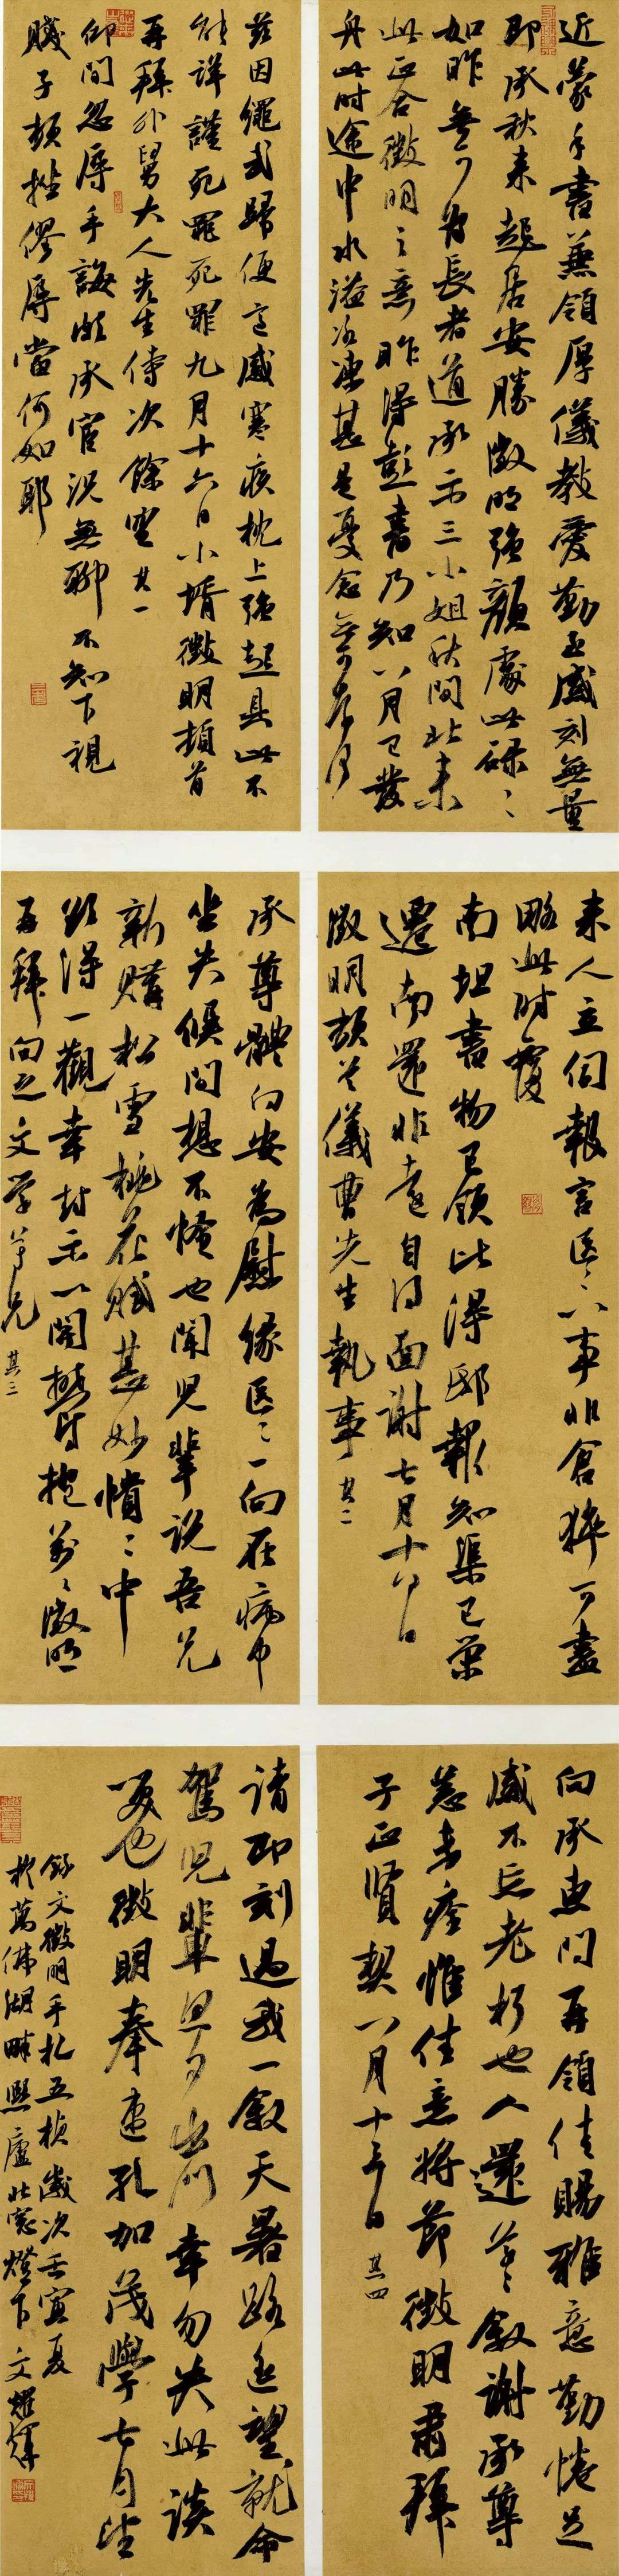 近蒙手書兼領厚儀教愛勤至感刻無量
即承秋來起居安勝徵明強顏處此碌〻
如昨無可為長者道承示三小姐秋間北來
此正合徵明之意昨得彭書乃知八月已發
舟此時途中水溢冰凍甚是憂念
茲因繩武歸便適感寒疾枕上強起具此不
能詳謹死罪死罪九月十六日小壻徵明頓首
再拜外舅大人先生侍次餘空 其一
仰間忽辱手誨兼承官況無聊不知下視
賤子頹拙僇辱當何如耶
來人立伺報言區〻六事非倉猝可盡
略此附覆
南坦書物已領比得邸報知渠已榮
遷南還非遠自得面謝七月十八日
徵明頓首儀曹先生執事 其二
承尊體向安為慰緣區〻一向在病中
坐失候問想不怪也聞兒輩說吾兄
新購松雪桃花賦甚妙憒〻中
欲得一觀幸封示以開
抱萬〻徵明
再拜向之文學尊兄 其三
向承惠問再領佳賜雅意勤惓足
感不忘老朽也人還草〻敘謝承尊
恙未痊惟佳意將節徵明肅拜
子正賢契八月十三日 其四
請即刻過我一敘天暑路近望就命
駕兒輩早出門幸勿失此談
笑也徵明奉速孔加茂學七月望
錄文徵明手札五楨歲次壬寅夏
於萬佛湖畔熙廬北窗燈下文耀輝